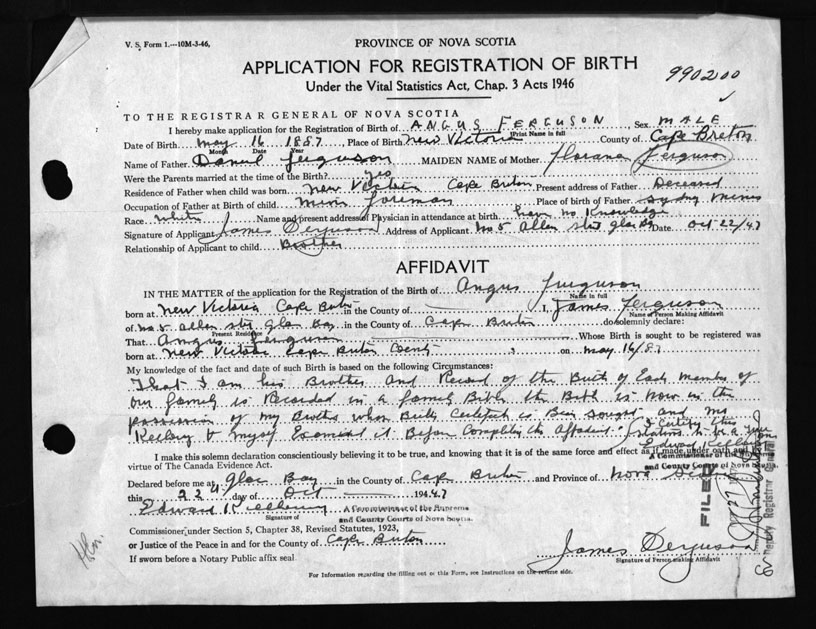 V. S. Form 1.—10M-3-46.
PROVINCE OF NOVA SCOTIA
APPLICATION FOR REGISTRATION OF BIRTH
Under the Vital Statistics Act, Chap. 3 Acts 1946
990200
TO THE REGISTRAR GENERAL OF NOVA SCOTIA
I hereby make application for the Registration of Birth of ANGUS FERGUSON, Sex MALE
Print Name in full
Date of Birth May 16 1887 Place of Birth New Victoria County of Cape Breton
Month Date Year
Name of Father Daniel Ferguson MAIDEN NAME of Mother Ferguson
Were the Parents married at the time of the Birth? yes
Residence of Father when child was born New Victoria Cape Breton Present address of Father Deceased
Occupation of Father at Birth of child Mine Foreman Place of birth of Father Sydney Mines
Race White Name and present address of Physician in attendance at birth have no Knowledge
Signature of Applicant James Ferguson Address of Applicant No 5 Allan str Glace Bay Date Oct 22/47
Relationship of Applicant to child Brother
AFFIDAVIT
IN THE MATTER of the application for the Registration of the Birth of Angus Ferguson
Name in full
born at New Victoria Cape Breton in the County of I, James Ferguson
Name of Person Making Affidavit
of No 5 Allan str Glace Bay in the County of Cape Breton do solemnly declare:
Present Residence
That Angus Ferguson Whose Birth is sought to be registered was
born at New Victoria Cape Breton County, on May 16/87
My knowledge of the fact and date of such Birth is based on the following Circumstances:
That I am his Brother and Record of the Birth of Each Member of
our family is Recorded in a family Bible the Bible is now in the
possession of my Brother whose Birth Certificate is Being sought and
myself Examined it Before Completing this Affidavit. I Certify this
to be a True
Edward
I make this solemn declaration conscientiously believing it to be true, and knowing that it is of the same force and effect as if made under oath and
virtue of The Canada Evidence Act.
A Commissioner of the
and County Courts of Nova Scotia
Declared before me at Glace Bay in the County of Cape Breton and Province of Nova Scotia
this 22nd day of Oct 1947
Edward
Signature of
A Commissioner of the Supreme
and County Courts of Nova Scotia.
Commissioner under Section 5, Chapter 38, Revised Statutes, 1923,
or Justice of the Peace in and for the County of Cape Breton
If sworn before a Notary Public affix seal
James Ferguson
Signature of Person making Affidavit
For Information regarding the filling out of this Form, see Instructions on the reverse side.
FILED
Deputy Registrar General